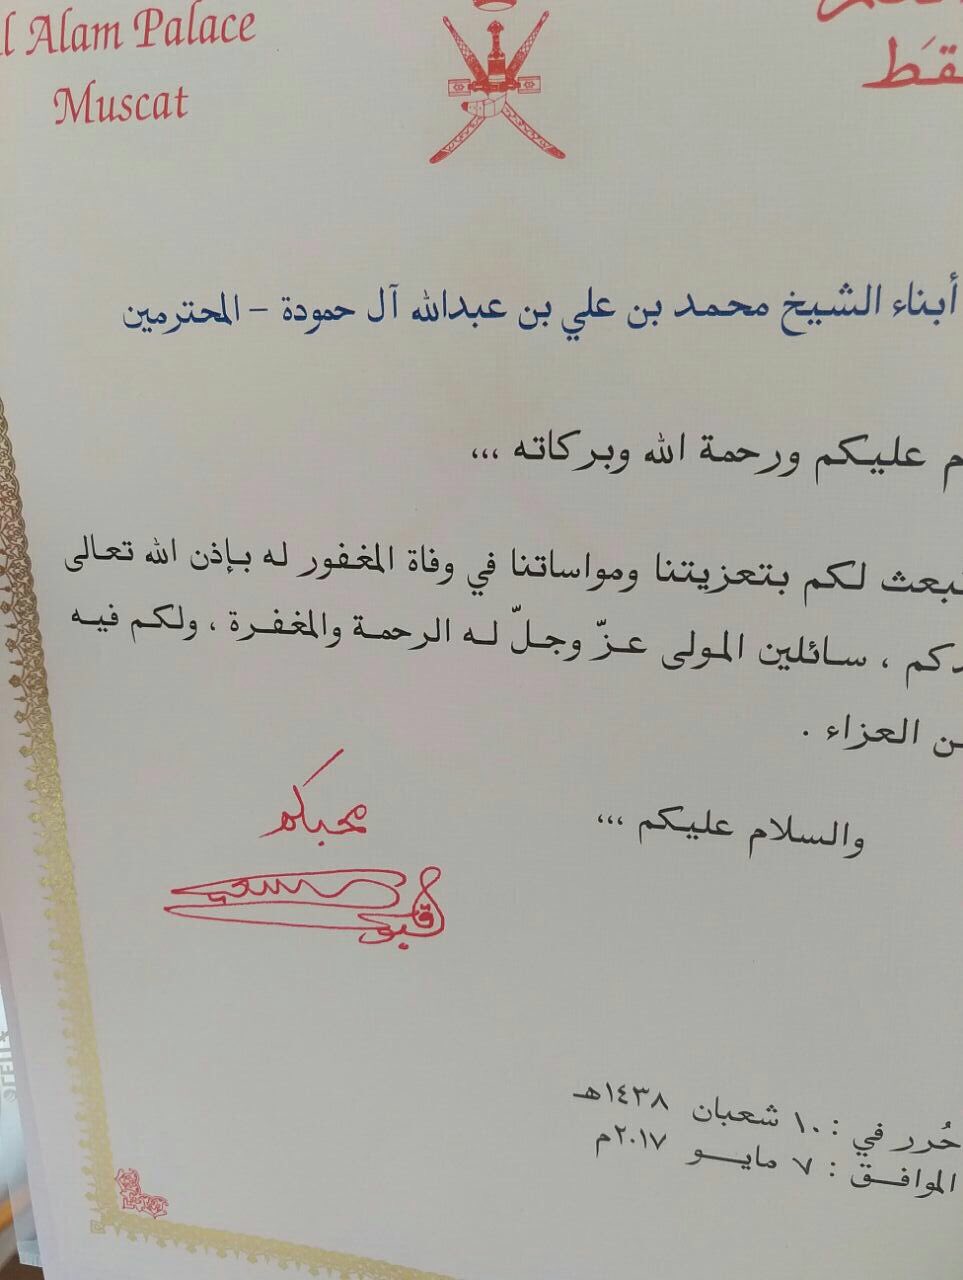 Alam Palace
Muscat
أبناء الشيخ محمد بن علي بن عبدالله آل حمودة - المحترمين
عليكم ورحمة الله وبركاته ،،،
لكم بتعزيتنا ومواساتنا في وفاة المغفور له بإذن الله تعالى
، سائلين المولى عزّ وجلّ له الرحمة والمغفرة ، ولكم فيه
العزاء .
والسلام عليكم ،،،
محبكم
قابوس بن سعيد
حُرر في : ١٠ شعبان ١٤٣٨هـ
الموافق : ٧ مايو ٢٠١٧م